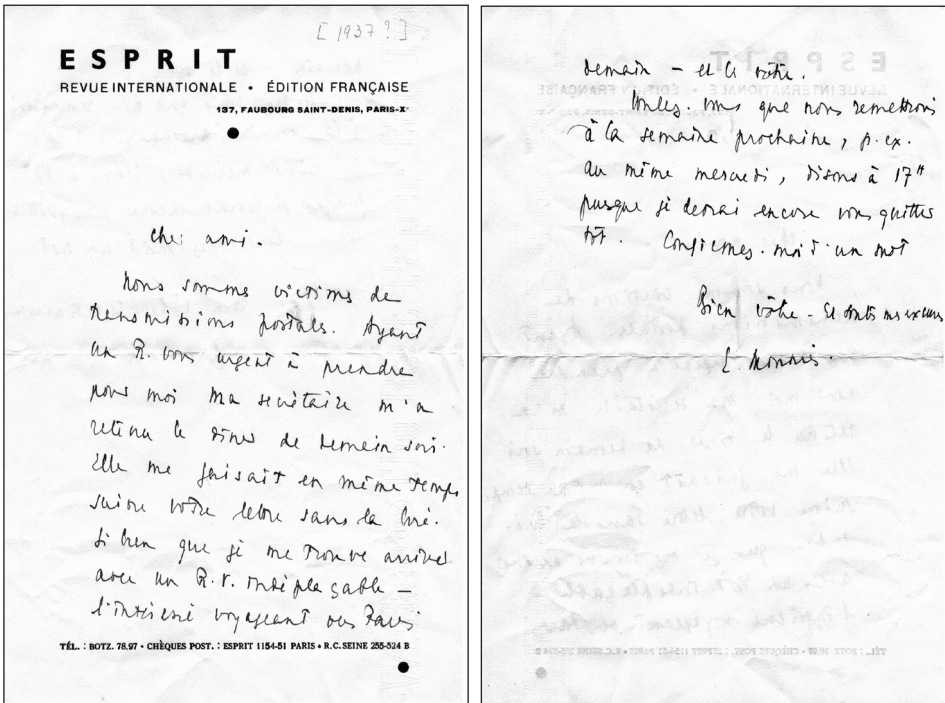 [1937?]
ESPRIT
REVUE INTERNATIONALE • ÉDITION FRANÇAISE
137, FAUBOURG SAINT-DENIS, PARIS-Xᵉ
Cher ami.
Nous sommes victimes de
transmissions postales. Ayant
un R. vous urgent à prendre
pour moi ma secrétaire m'a
retenu le dîner de demain soir.
Elle me faisait en même temps
suivre votre lettre sans la lire.
Si bien que je me trouve arriver
avec un R.V. indéplaçable –
l'intéressé voyageant vers Paris
TÉL. : BOTZ. 78.97 • CHÈQUES POST. : ESPRIT 1154-51 PARIS • R.C. SEINE 255-524 B
demain – et le vôtre.
Voulez-vous que nous remettions
à la semaine prochaine, p. ex.
au même mercredi, disons à 17ʰ
puisque je devrai encore vous quitter
tôt. Confirmez-moi d'un mot
Bien vôtre – et toutes mes excuses
E. Mounier.